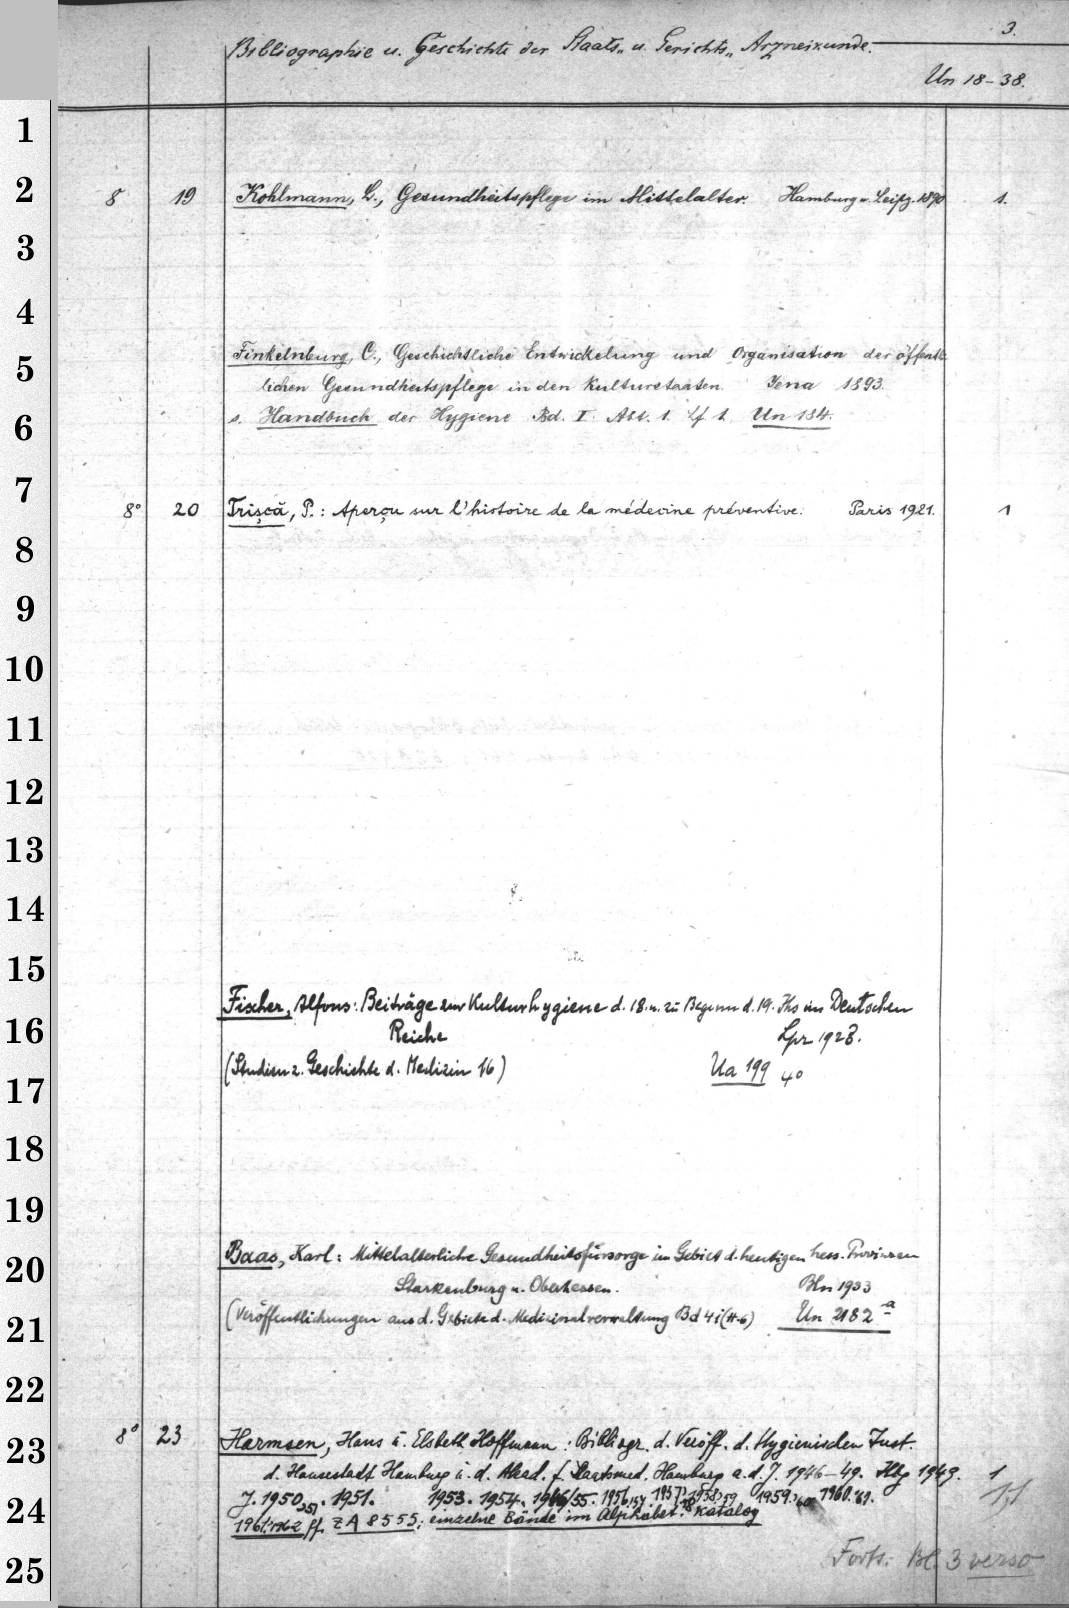 3.
Bibliographie u. Geschichte der Staats- u. Gerichts- Arzneikunde.
Un 18-38.
1
2
8 19 Kohlmann, L., Gesundheitspflege im Mittelalter. Hamburg u. Leipz. 1890 1.
3
4
Finkelnburg, C., Geschichtliche Entwickelung und Organisation der öffent-
5
lichen Gesundheitspflege in den Kulturstaaten. Jena 1893.
6
s. Handbuch der Hygiene Bd. I. Abt. 1. Lf 1. Un 184.
7
8° 20 Trişcă, P.: Aperçu sur l'histoire de la médecine préventive. Paris 1921. 1
8
9
10
11
12
13
14
15
Fischer, Alfons: Beiträge zur Kulturhygiene d. 18. u. zu Beginn d. 19. Jhs im Deutschen
16
Reiche Lpz 1928.
(Studien z. Geschichte d. Medizin 16) Ua 199 4°
17
18
19
Baas, Karl: Mittelalterliche Gesundheitsfürsorge im Gebiet d. heutigen hess. Provinzen
20
Starkenburg u. Oberhessen. Bln 1933
(Veröffentlichungen aus d. Gebiete d. Medizinalverwaltung Bd 41 (H.6) Un 2182 a
21
22
8° 23 Harmsen, Hans u. Elsbeth Hoffmann: Bibliogr. d. Veröff. d. Hygienischen Inst.
23
d. Hansestadt Hamburg u. d. Akad. f. Staatsmed. Hamburg a. d. J. 1946-49. Hbg 1949. 1
J. 1950, 1951. 1953. 1954. /55. 1956/57 1959. 1960. 1,1
24
1961/1962 ff. ZA 8555; einzelne Bände im Alphabet. Katalog
25
Forts. Bl. 3 verso